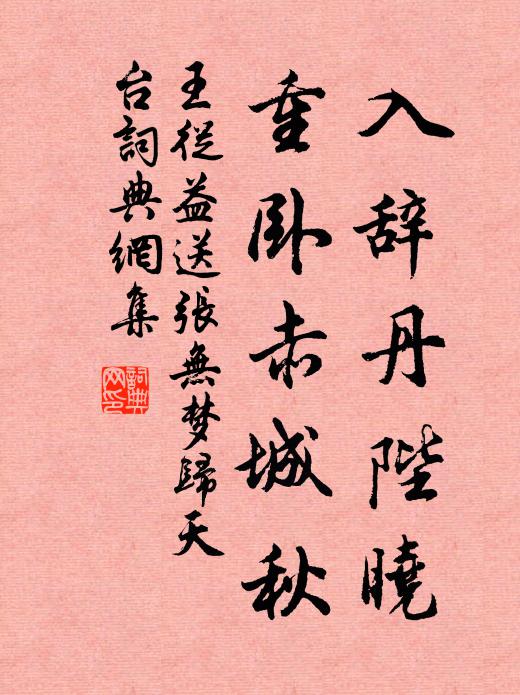 入辞丹陛曉
重卧赤城秋
王從益送張無梦歸天
台詞典網集
詞典
网印